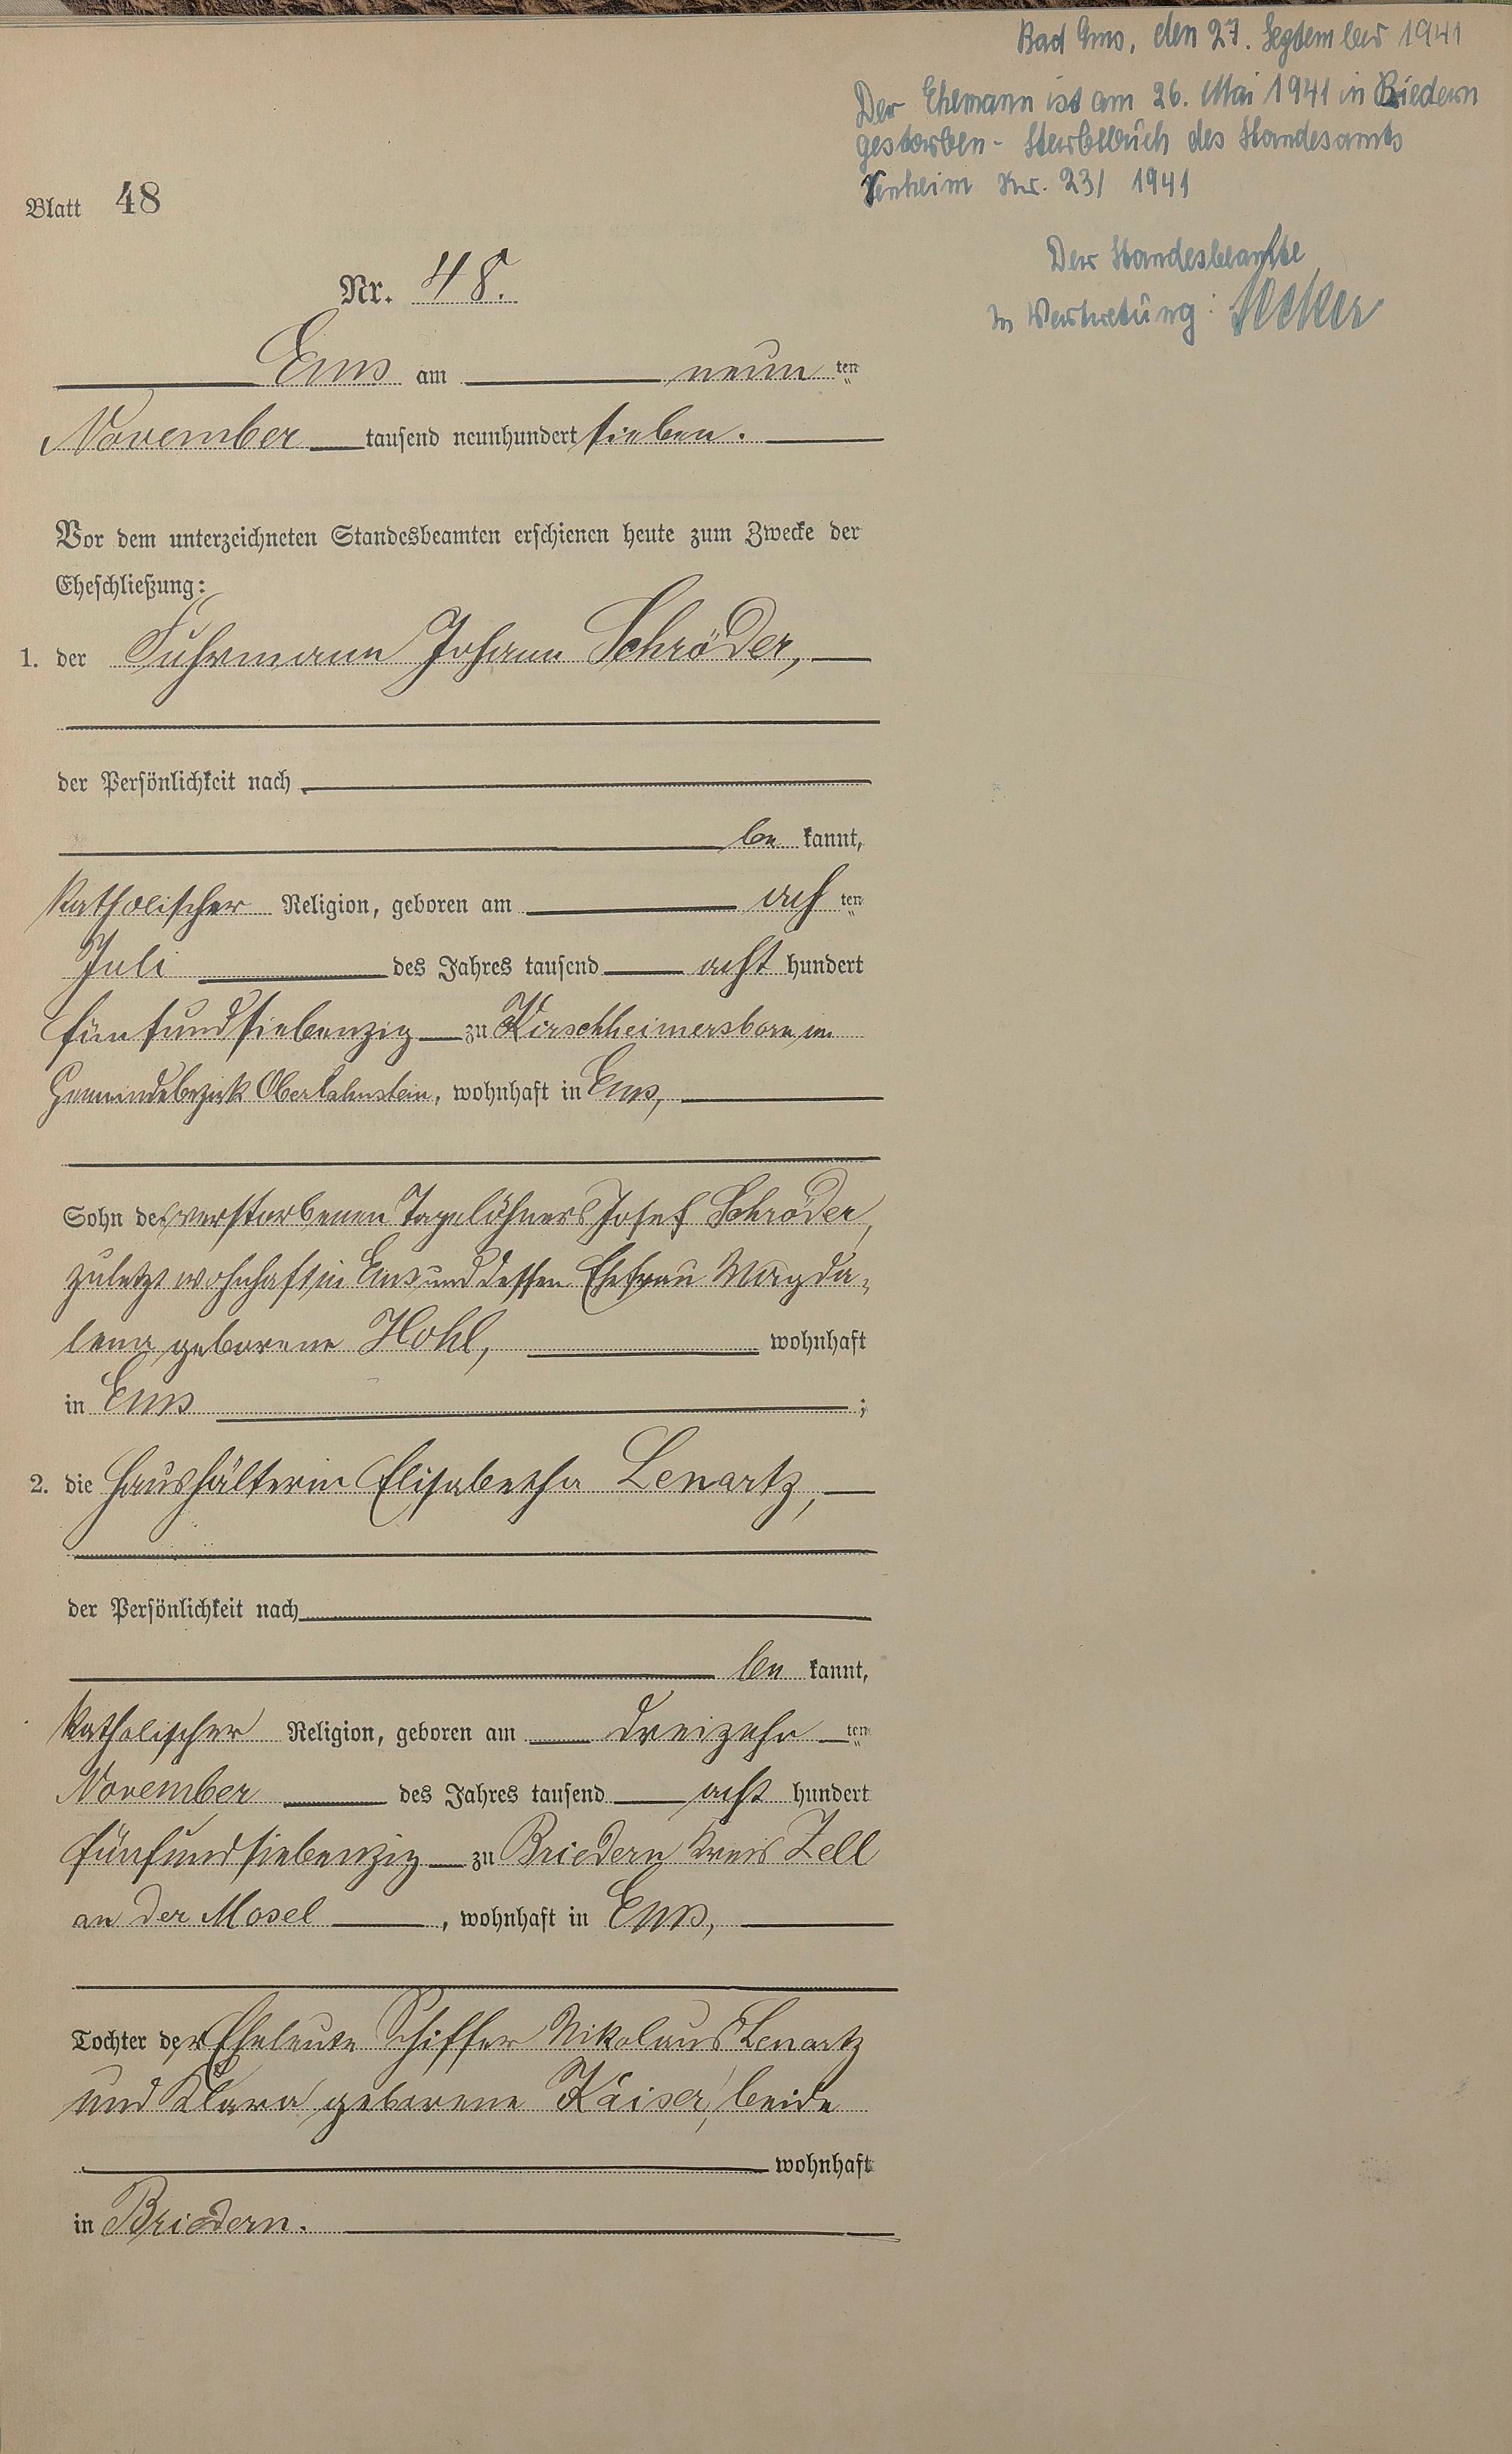 Bad Ems, den 27. September 1941
Der Ehemann ist am 26. Mai 1941 in Briedern
gestorben - Sterbebuch des Standesamts
Senheim Nr. 23/ 1941
Der Standesbeamte
In Vertretung:
Blatt 48
Nr. 48.
Ems am neun ten
November tausend neunhundert sieben.
Vor dem unterzeichneten Standesbeamten erschienen heute zum Zwecke der
Eheschließung:
1. der Fuhrmann Johann Schröder,
der Persönlichkeit nach
be kannt,
katholischer Religion, geboren am ach ten
Juli des Jahres tausend acht hundert
fünfundsiebenzig zu Kirschheimersborn im
Gemeindebezirk Oberlahnstein, wohnhaft in Ems,
Sohn des verstorbenen Tagelöhners Josef Schröder,
zuletzt wohnhaft in Ems und dessen Ehefrau Magda-
lena geborene Hohl, wohnhaft
in Ems ;
2. die Haushälterin Elisabetha Lenartz,
der Persönlichkeit nach
be kannt,
katholischer Religion, geboren am dreizehn ten
November des Jahres tausend acht hundert
fünfundsiebenzig zu Briedern Kreis Zell
an der Mosel , wohnhaft in Ems,
Tochter der Eheleute Schiffer Nikolaus Lenartz
und Klara geborene Kaiser, beide
wohnhaft
in Briedern.